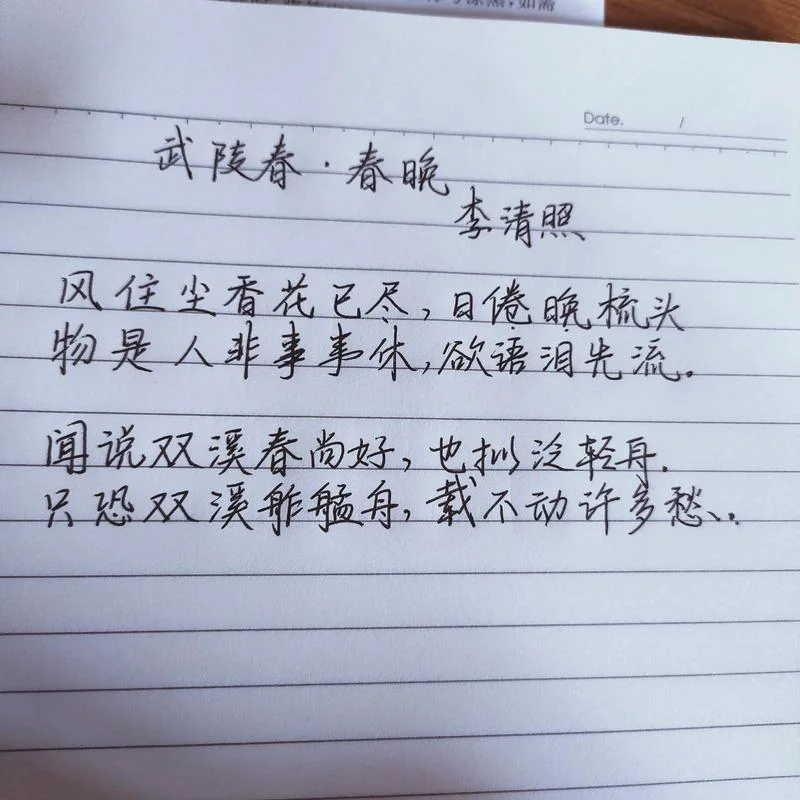 如需
Date. /
武陵春·春晚
李清照
风住尘香花已尽，日倦晚梳头
物是人非事事休，欲语泪先流。
闻说双溪春尚好，也拟泛轻舟.
只恐双溪舴艋舟，载不动许多愁..